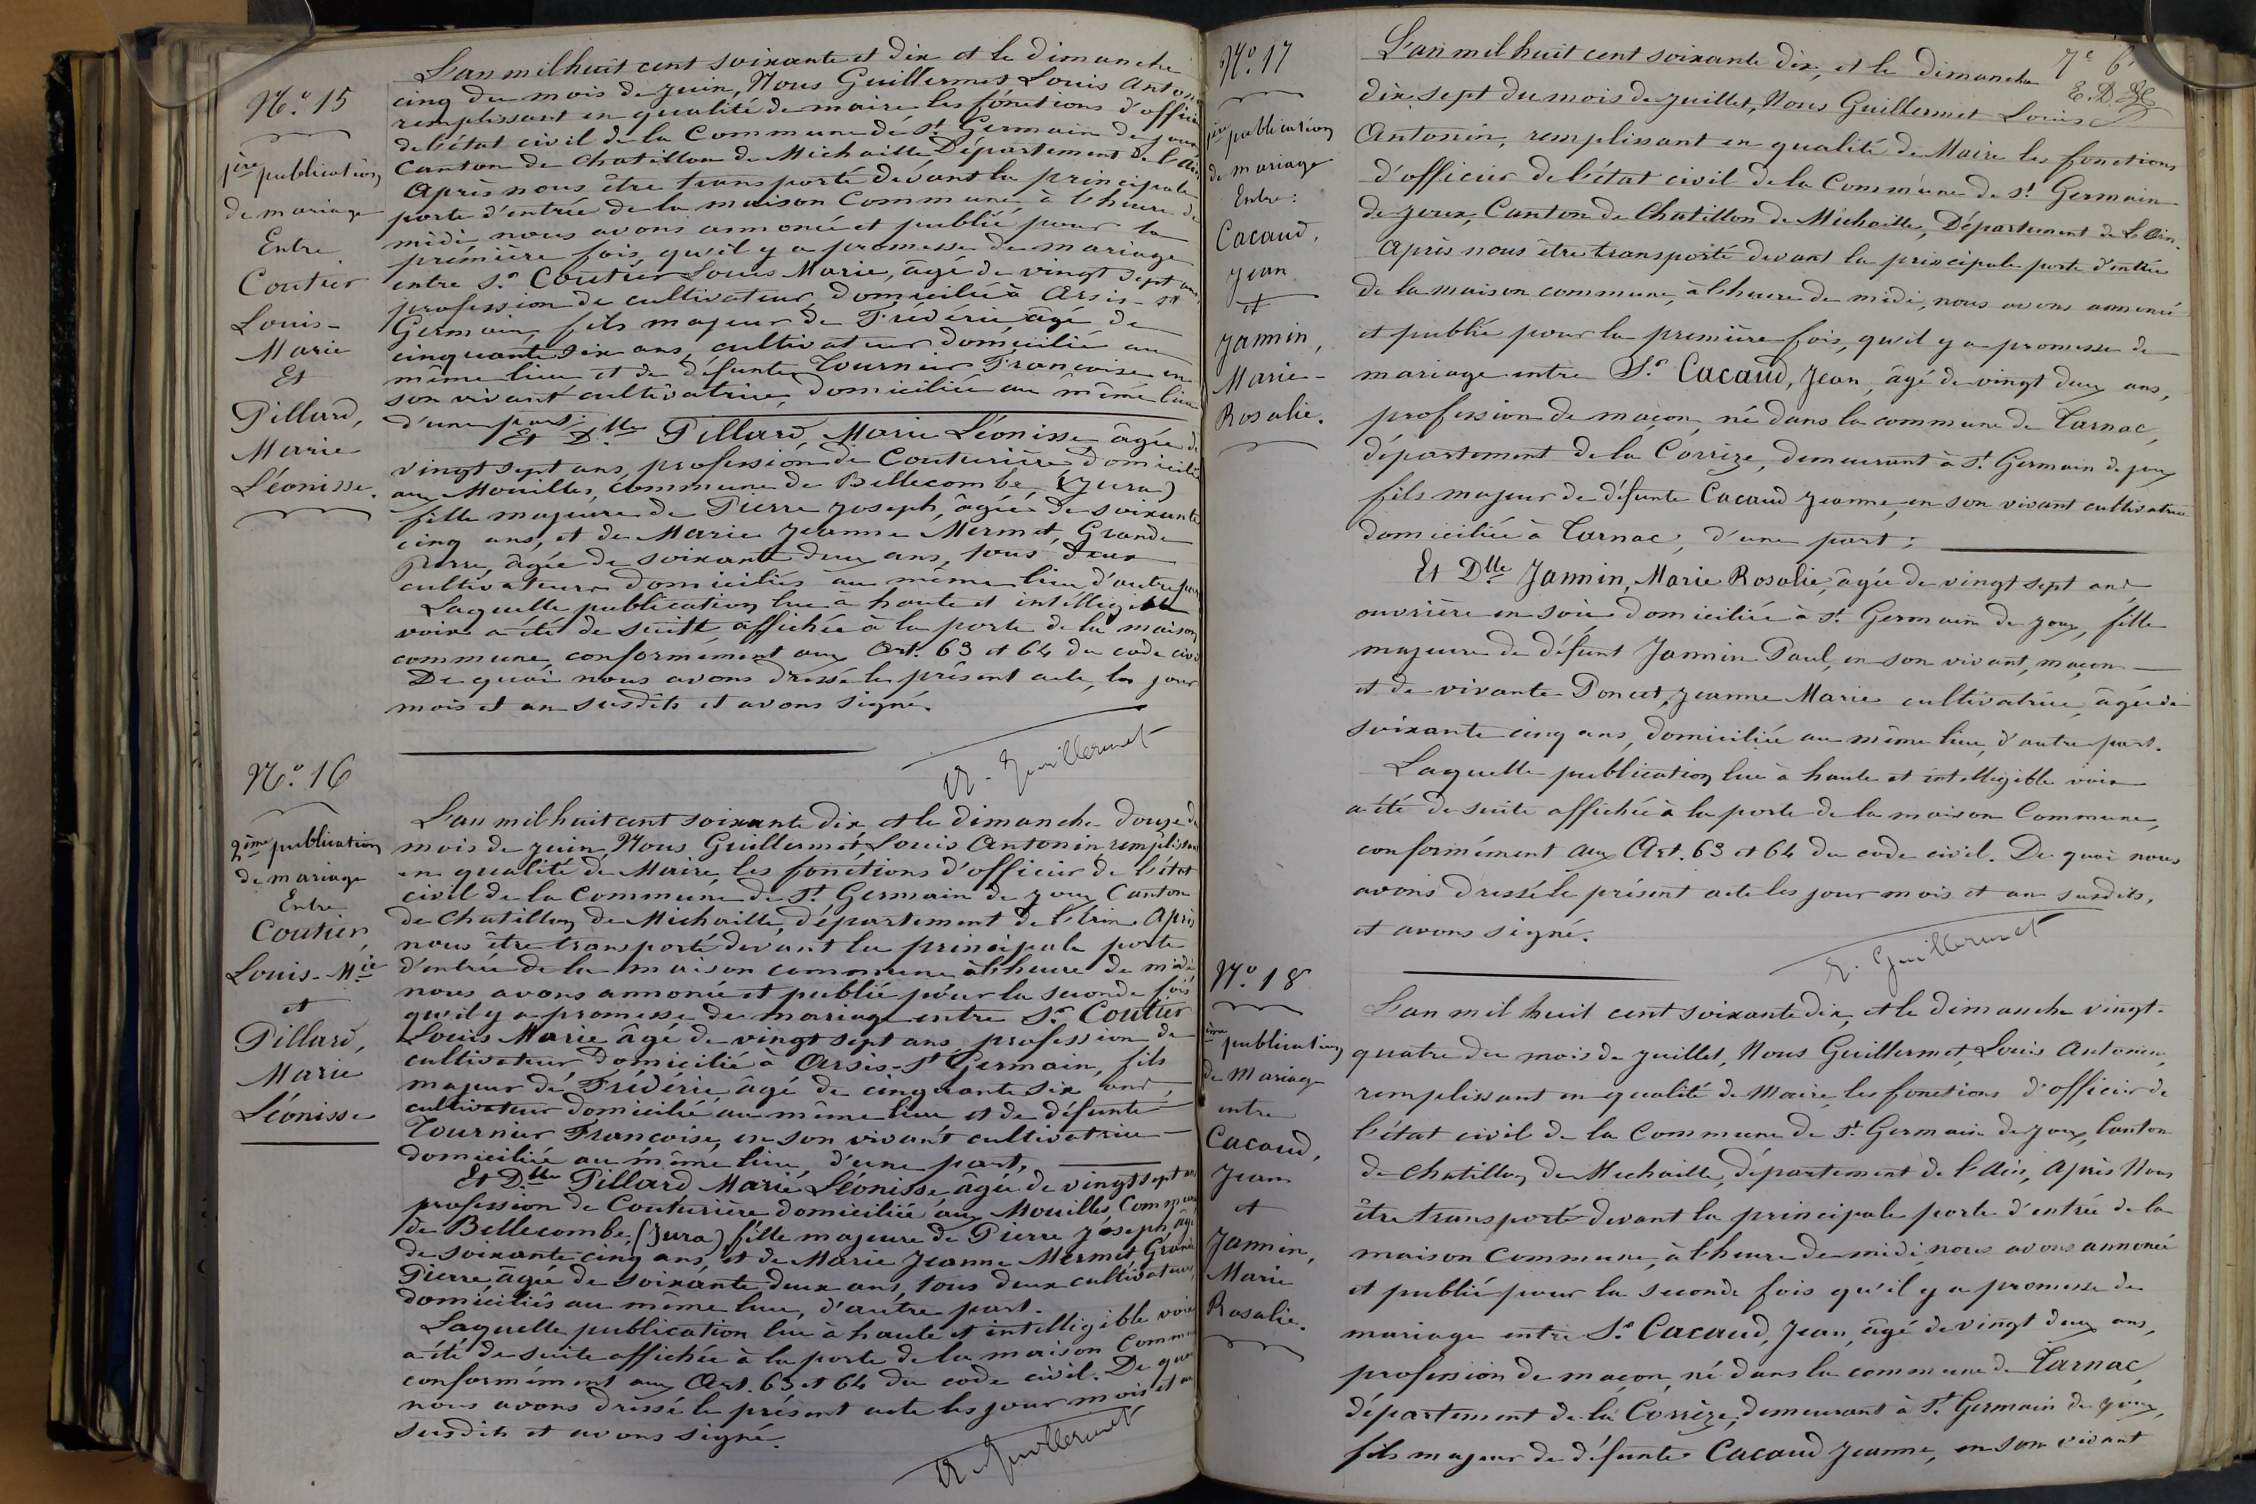 N.o 15
1ère publication
de mariage
Entre
Coutier
Louis-
Marie
Et
Pillard,
Marie
Léonisse.
L'an mil huit cent soixante et dix et le dimanche
cinq du mois de juin, Nous Guillermet Louis Anton
remplissant en qualité de maire les fonctions d'officier
de l'état civil de la Commune de St Germain de joux
Canton de Chatillon de Michaille, Département de l'Ain
Après nous être transporté devant la principale
porte d'entrée de la maison Commune, à l'heure de
midi nous avons annoncé et publié pour la
première fois, qu'il y a promesse de mariage
entre Sr Coutier Louis Marie, âgé de vingt sept ans,
profession de cultivateur, domicilié à Arsis-St
Germain, fils majeur de Frédéric âgé de
cinquante six ans, cultivateur domicilié au
même lieu et de défunte Tournier Françoise en
son vivant cultivatrice, domiciliée au même lieu
d'une part;
Et Dlle Pillard, Marie Léonisse âgée de
vingt sept ans, profession de Couturière domicilié
aux Mouilles, commune de Bellecombe (Jura)
fille majeure de Pierre Joseph, âgée de soixante
cinq ans, et de Marie Jeanne Mermet, Grande
Pierre, âgée de soixante deux ans, tous deux
cultivateurs domiciliés au même lieu d'autre part
Laquelle publication lue à haute et intelligible
voix a été de suite affichée à la porte de la maison
commune, conformément aux Art. 63 et 64 du code civil
De quoi nous avons dressé le présent acte, les jour
mois et an susdits et avons signé.
A. Guillermet
N.o 16
2ème publication
de mariage
Entre
Coutier,
Louis-Mie
et
Pillard,
Marie
Léonisse
L'an mil huit cent soixante dix et le dimanche douze du
mois de juin, Nous Guillermet Louis Antonin remplissant
en qualité de Maire, les fonctions d'officier de l'état
civil de la Commune de St Germain de joux Canton
de Chatillon de Michaille, département de l'Ain Après
nous être transporté devant la principale porte
d'entrée de la maison commune à l'heure de midi
nous avons annoncé et publié pour la seconde fois
qu'il y a promesse de mariage entre Sr Coutier
Louis Marie âgé de vingt sept ans profession de
cultivateur, domicilié à Arsis-St Germain, fils
majeur de Frédéric âgé de cinquante six ans,
cultivateur domicilié au même lieu et de défunte
Tournier Françoise, en son vivant cultivatrice
domiciliée au même lieu, d'une part,
Et Dlle Pillard Marie Léonisse âgée de vingt sept ans
profession de Couturière domiciliée aux Mouilles, Commune
de Bellecombe, (Jura) fille majeure de Pierre Joseph âgé
de soixante cinq ans, et de Marie Jeanne Mermet Grande
Pierre, âgée de soixante deux ans, tous deux cultivateurs,
domiciliés au même lieu, d'autre part.
Laquelle publication lue à haute et intelligible voix
a été de suite affichée à la porte de la maison Commune
conformément aux Art. 63 et 64 du code civil. De quoi
nous avons dressé le présent acte les jour mois et an
susdits et avons signé.
A. Guillermet
7e 6e
N.o 17
1ère publication
de mariage
Entre:
Cacaud,
Jean
et
Jannin,
Marie-
Rosalie.
L'an mil huit cent soixante dix, et le dimanche
dix sept du mois de juillet, Nous Guillermet Louis
Antonin, remplissant en qualité de Maire les fonctions
d'officier de l'état civil de la Commune de St Germain
de joux, Canton de Chatillon de Michaille, Département de l'Ain.
Après nous être transporté devant la principale porte d'entrée
de la maison commune, à l'heure de midi, nous avons annoncé
et publié pour la première fois, qu'il y a promesse de
mariage entre Sr Cacaud, Jean, âgé de vingt deux ans,
profession de maçon, né dans la commune de Tarnac,
département de la Corrèze, demeurant à St Germain de joux
fils majeur de défunte Cacaud Jeanne, en son vivant cultivatrice
domiciliée à Tarnac, d'une part;
Et Dlle Jannin, Marie Rosalie, âgée de vingt sept ans
ouvrière en soie domiciliée à St Germain de joux, fille
majeure de défunt Jannin Paul, en son vivant, maçon
et de vivante Poncet, Jeanne Marie cultivatrice, âgée de
soixante cinq ans, domiciliée au même lieu, d'autre part.
Laquelle publication lue à haute et intelligible voix
a été de suite affichée à la porte de la maison Commune,
conformément aux Art. 63 et 64 du code civil. De quoi nous
avons dressé le présent acte les jour mois et an susdits,
et avons signé.
A. Guillermet
N.o 18
publication
de mariage
entre
Cacaud,
Jean
et
Jannin,
Marie
Rosalie.
L'an mil huit cent soixante dix, et le dimanche vingt-
quatre du mois de juillet, Nous Guillermet, Louis Antonin,
remplissant en qualité de Maire, les fonctions d'officier de
l'état civil de la Commune de St Germain de joux, Canton
de Chatillon de Michaille, département de l'Ain, Après Nous
être transporté devant la principale porte d'entrée de la
maison Commune, à l'heure de midi, nous avons annoncé
et publié pour la seconde fois qu'il y a promesse de
mariage entre Sr Cacaud, Jean, âgé de vingt deux ans,
profession de maçon, né dans la commune de Tarnac,
département de la Corrèze, demeurant à St Germain de joux,
fils majeur de défunte Cacaud Jeanne, en son vivant